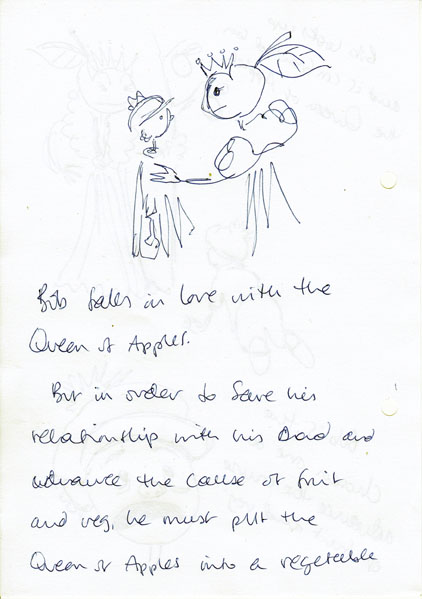 Bib falls in love with the
Queen of Apples.
But in order to save his
relationship with his Dad and
advance the cause of fruit
and veg, he must put the
Queen of Apples into a vegetable